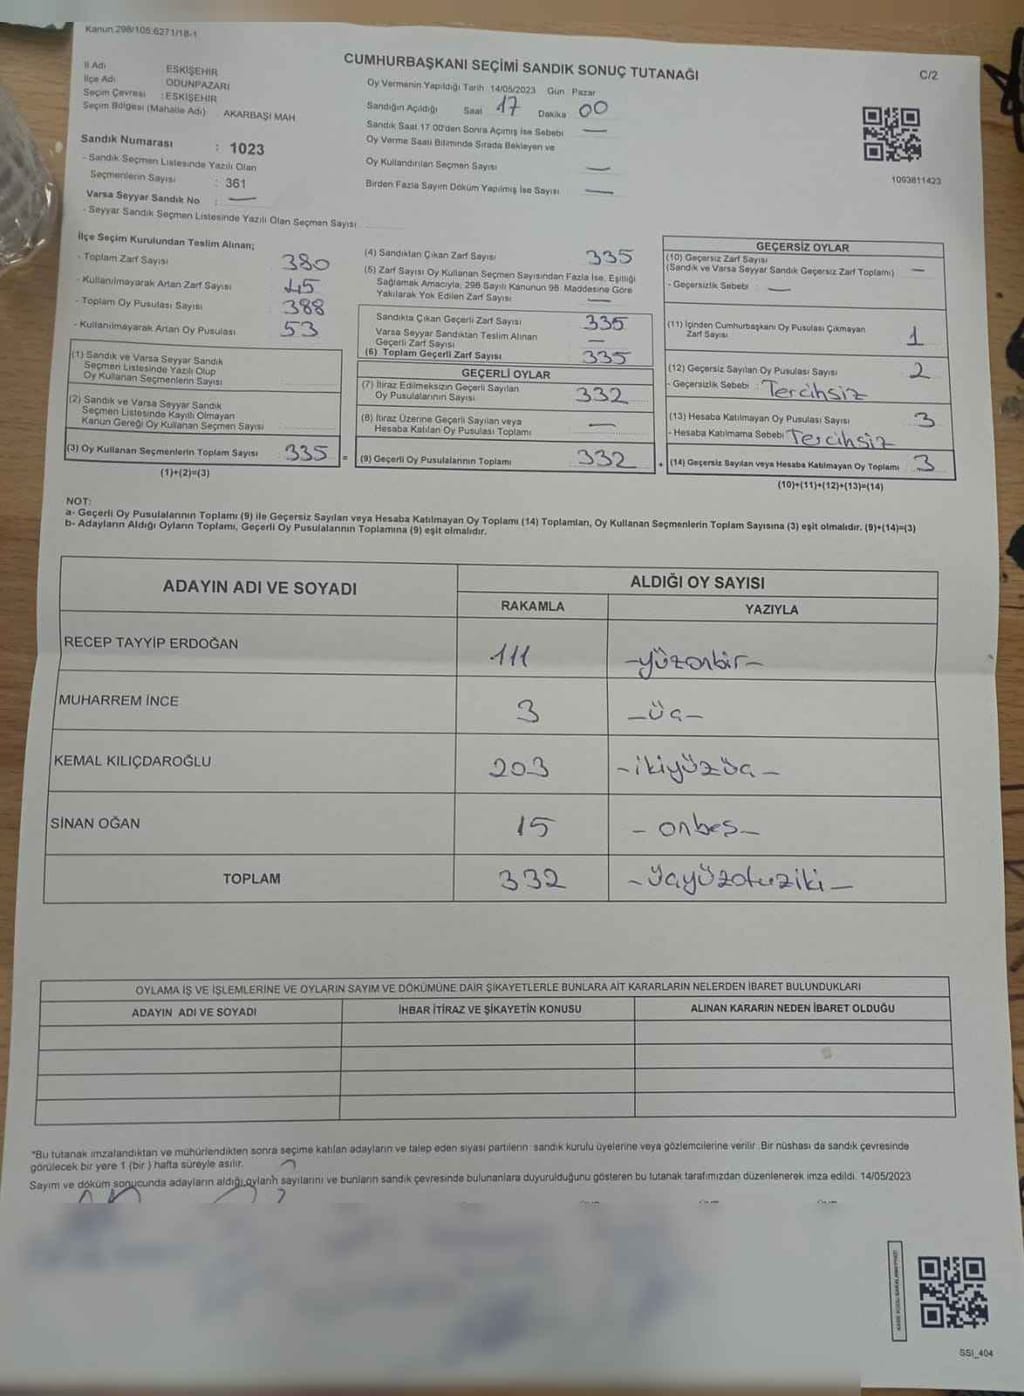 Kanun 298/105.6271/18-1
CUMHURBAŞKANI SEÇİMİ SANDIK SONUÇ TUTANAĞI
C/2
İl Adı ESKİŞEHİR
İlçe Adı ODUNPAZARI
Seçim Çevresi : ESKİŞEHİR
Seçim Bölgesi (Mahalle Adı) AKARBAŞI MAH
Sandık Numarası : 1023
- Sandık Seçmen Listesinde Yazılı Olan
Seçmenlerin Sayısı : 361
Varsa Seyyar Sandık No : —
- Seyyar Sandık Seçmen Listesinde Yazılı Olan Seçmen Sayısı
Oy Vermenin Yapıldığı Tarih 14/05/2023 Gün Pazar
Sandığın Açıldığı Saat 17 Dakika 00
Sandık Saat 17.00'den Sonra Açmış İse Sebebi —
Oy Verme Saati Bitiminde Sırada Bekleyen ve
Oy Kullandırılan Seçmen Sayısı —
Birden Fazla Sayım Döküm Yapılmış İse Sayısı —
1093811423
İlçe Seçim Kurulundan Teslim Alınan;
- Toplam Zarf Sayısı 380
- Kullanılmayarak Artan Zarf Sayısı 45
- Toplam Oy Pusulası Sayısı 388
- Kullanılmayarak Artan Oy Pusulası 53
(1) Sandık ve Varsa Seyyar Sandık
Seçmen Listesinde Yazılı Olup
Oy Kullanan Seçmenlerin Sayısı
(2) Sandık ve Varsa Seyyar Sandık
Seçmen Listesinde Kayıtlı Olmayan
Kanun Gereği Oy Kullanan Seçmen Sayısı
(3) Oy Kullanan Seçmenlerin Toplam Sayısı 335 =
(1)+(2)=(3)
(4) Sandıktan Çıkan Zarf Sayısı 335
(5) Zarf Sayısı Oy Kullanan Seçmen Sayısından Fazla İse, Eşitliği
Sağlamak Amacıyla, 298 Sayılı Kanunun 98. Maddesine Göre
Yakılarak Yok Edilen Zarf Sayısı —
Sandıkta Çıkan Geçerli Zarf Sayısı 335
Varsa Seyyar Sandıktan Teslim Alınan
Geçerli Zarf Sayısı —
(6) Toplam Geçerli Zarf Sayısı 335
GEÇERLİ OYLAR
(7) İtiraz Edilmeksizin Geçerli Sayılan
Oy Pusulalarının Sayısı 332
(8) İtiraz Üzerine Geçerli Sayılan veya
Hesaba Katılan Oy Pusulası Toplamı —
(9) Geçerli Oy Pusulalarının Toplamı 332 +
GEÇERSİZ OYLAR
(10) Geçersiz Zarf Sayısı
(Sandık ve Varsa Seyyar Sandık Geçersiz Zarf Toplamı) —
- Geçersizlik Sebebi : —
(11) İçinden Cumhurbaşkanı Oy Pusulası Çıkmayan
Zarf Sayısı 1
(12) Geçersiz Sayılan Oy Pusulası Sayısı 2
- Geçersizlik Sebebi : Tercihsiz
(13) Hesaba Katılmayan Oy Pusulası Sayısı 3
- Hesaba Katılmama Sebebi Tercihsiz
(14) Geçersiz Sayılan veya Hesaba Katılmayan Oy Toplamı 3
(10)+(11)+(12)+(13)=(14)
NOT:
a- Geçerli Oy Pusulalarının Toplamı (9) ile Geçersiz Sayılan veya Hesaba Katılmayan Oy Toplamı (14) Toplamları, Oy Kullanan Seçmenlerin Toplam Sayısına (3) eşit olmalıdır. (9)+(14)=(3)
b- Adayların Aldığı Oyların Toplamı, Geçerli Oy Pusulalarının Toplamına (9) eşit olmalıdır.
ADAYIN ADI VE SOYADI
ALDIĞI OY SAYISI
RAKAMLA YAZIYLA
RECEP TAYYİP ERDOĞAN 111 -yüzonbir-
MUHARREM İNCE 3 -üç-
KEMAL KILIÇDAROĞLU 203 -ikiyüzüç-
SİNAN OĞAN 15 -onbeş-
TOPLAM 332 -üçyüzotuziki-
OYLAMA İŞ VE İŞLEMLERİNE VE OYLARIN SAYIM VE DÖKÜMÜNE DAİR ŞİKAYETLERLE BUNLARA AİT KARARLARIN NELERDEN İBARET BULUNDUKLARI
ADAYIN ADI VE SOYADI İHBAR İTİRAZ VE ŞİKAYETİN KONUSU ALINAN KARARIN NEDEN İBARET OLDUĞU
*Bu tutanak imzalandıktan ve mühürlendikten sonra seçime katılan adayların ve talep eden siyasi partilerin sandık kurulu üyelerine veya gözlemcilerine verilir. Bir nüshası da sandık çevresinde
görülecek bir yere 1 (bir ) hafta süreyle asılır.
Sayım ve döküm sonucunda adayların aldığı oyların sayılarını ve bunların sandık çevresinde bulunanlara duyurulduğunu gösteren bu tutanak tarafımızdan düzenlenerek imza edildi. 14/05/2023
SSI_404